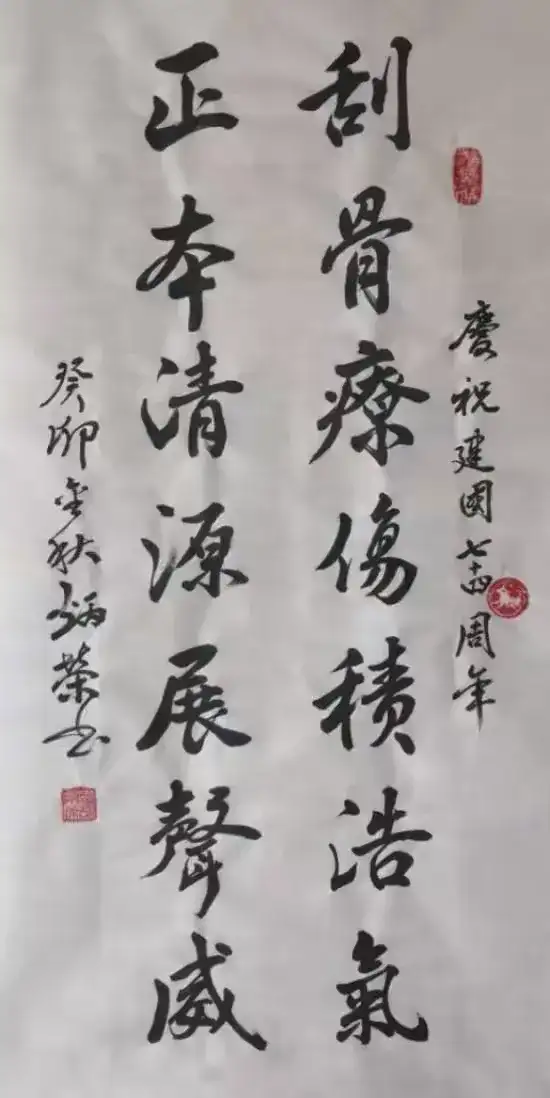 慶祝建國七十四周年
刮骨療傷積浩氣
正本清源展聲威
癸卯金秋炳榮书